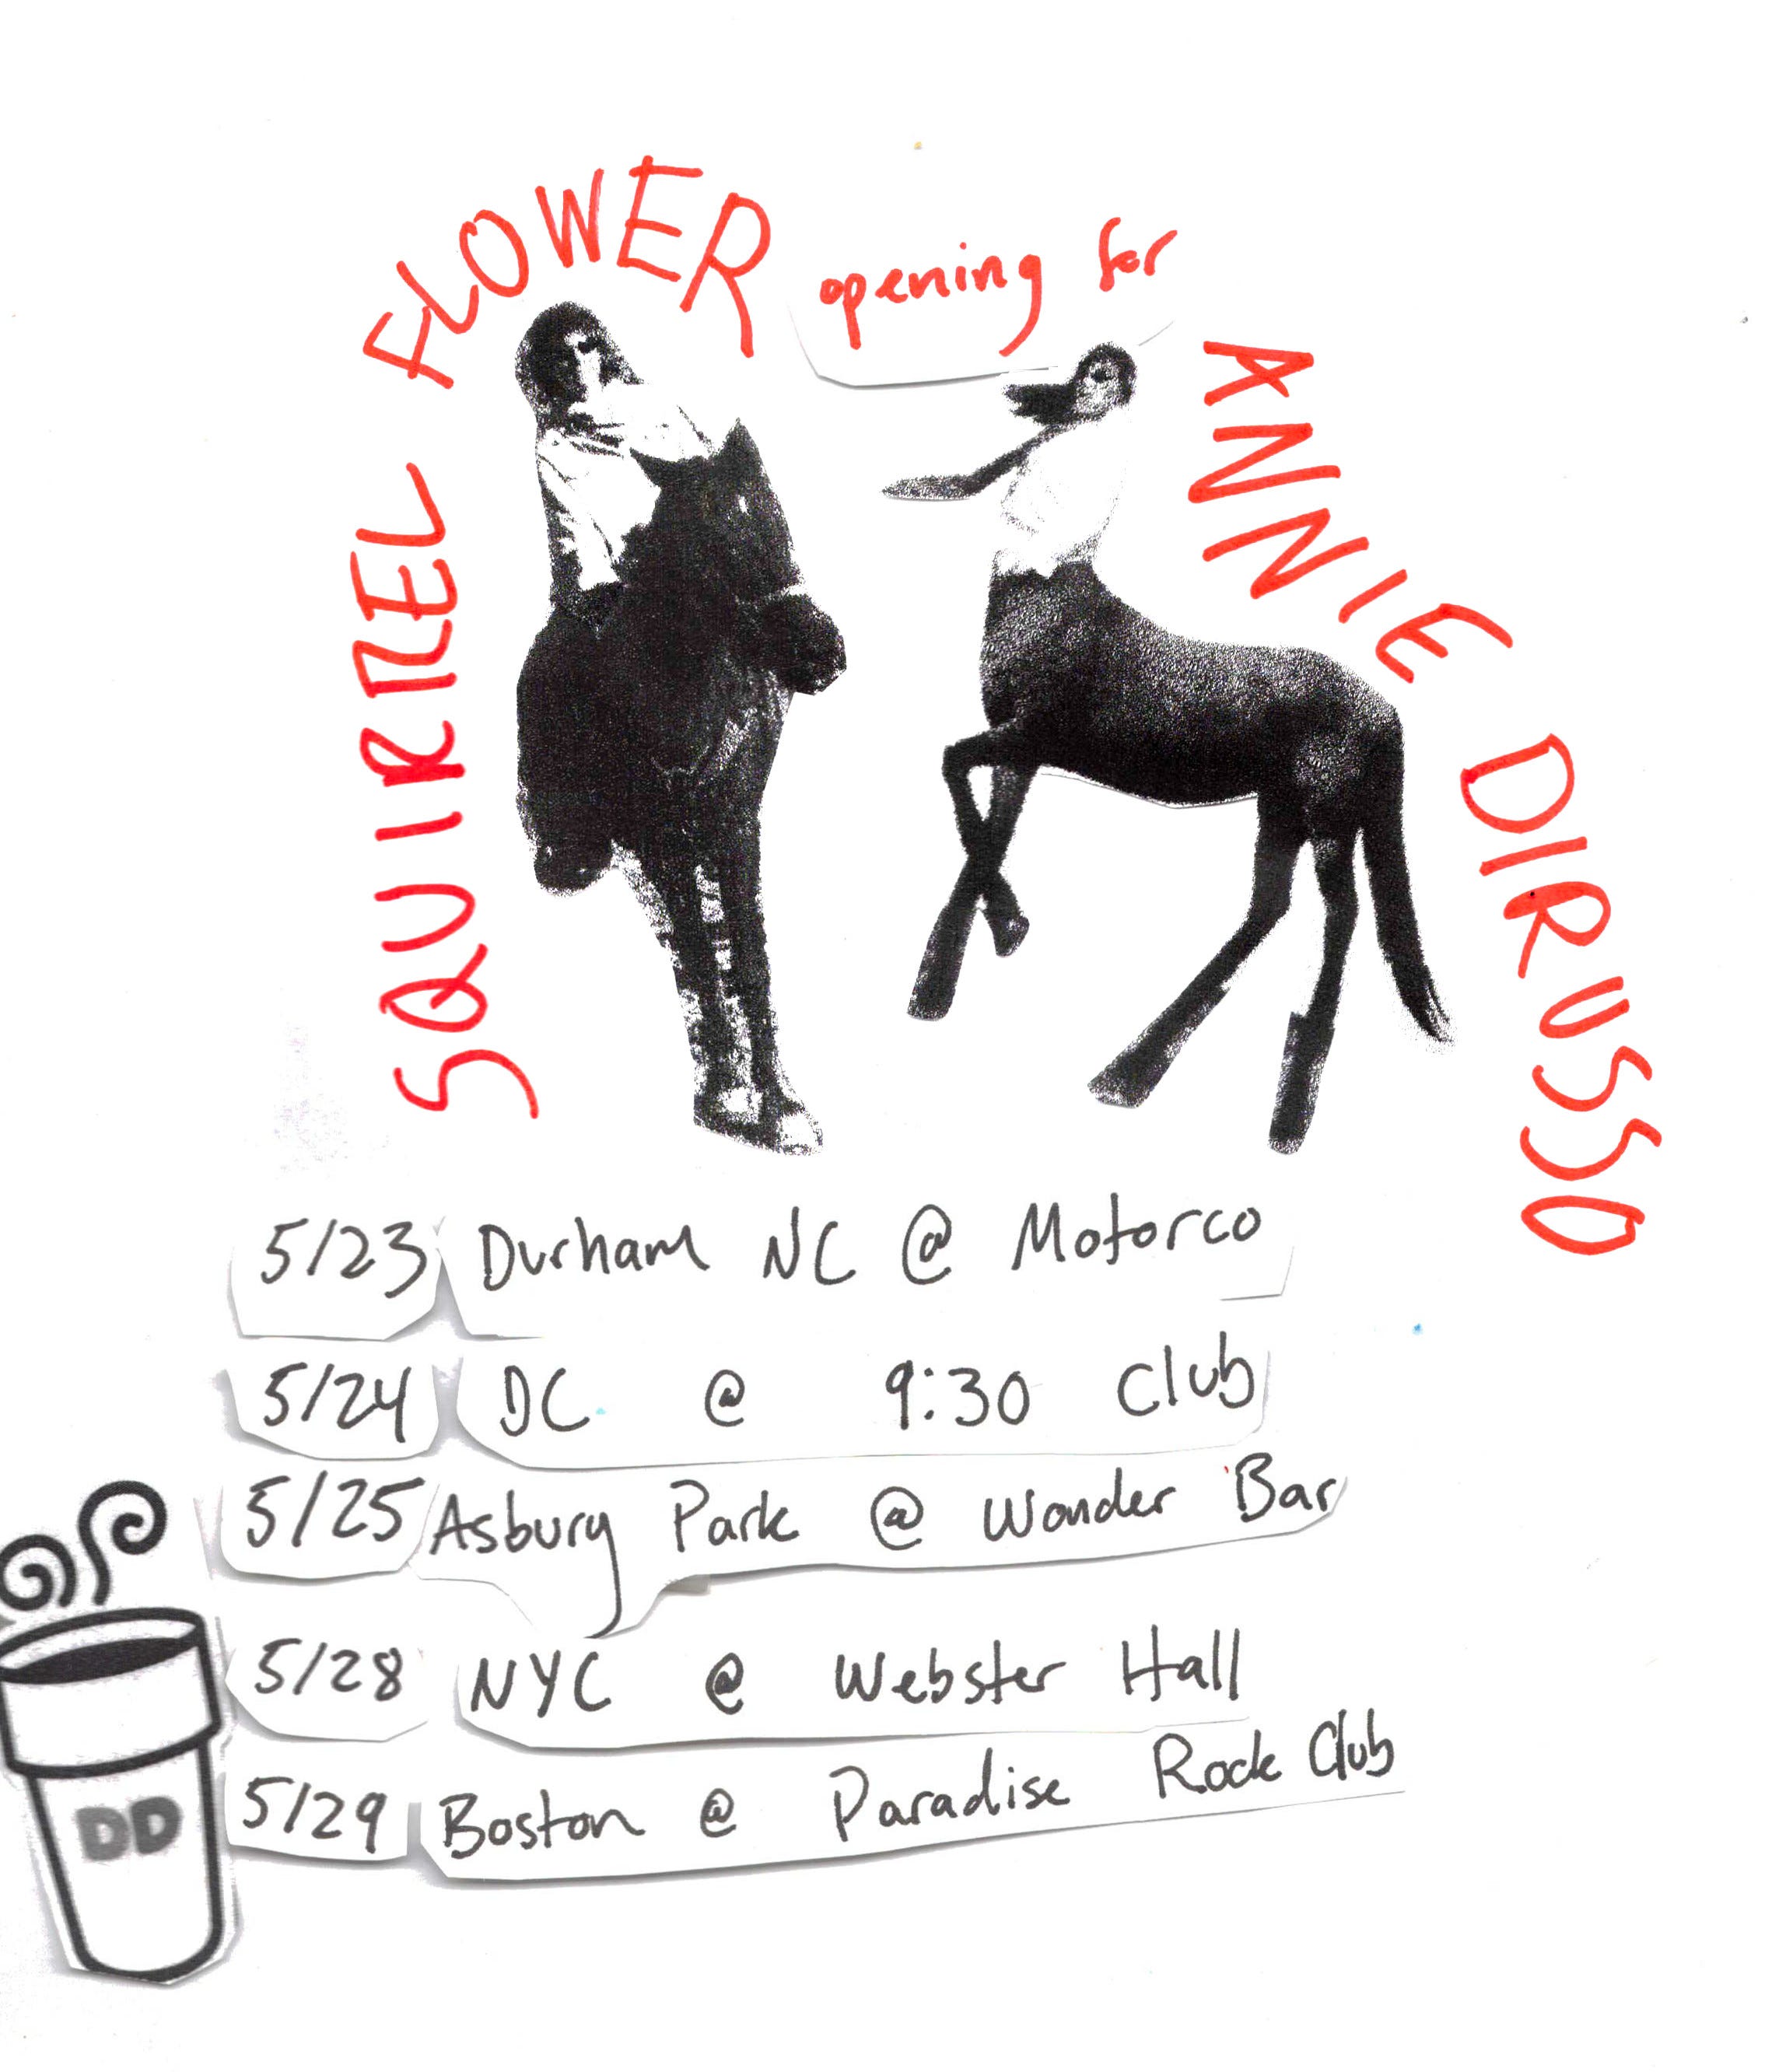 SQUIRREL FLOWER
opening for
ANNIE DIRUSSO
5/23 Durham NC @ Motorco
5/24 DC @ 9:30 Club
5/25 Asbury Park @ Wonder Bar
5/28 NYC @ Webster Hall
5/29 Boston @ Paradise Rock Club
DD